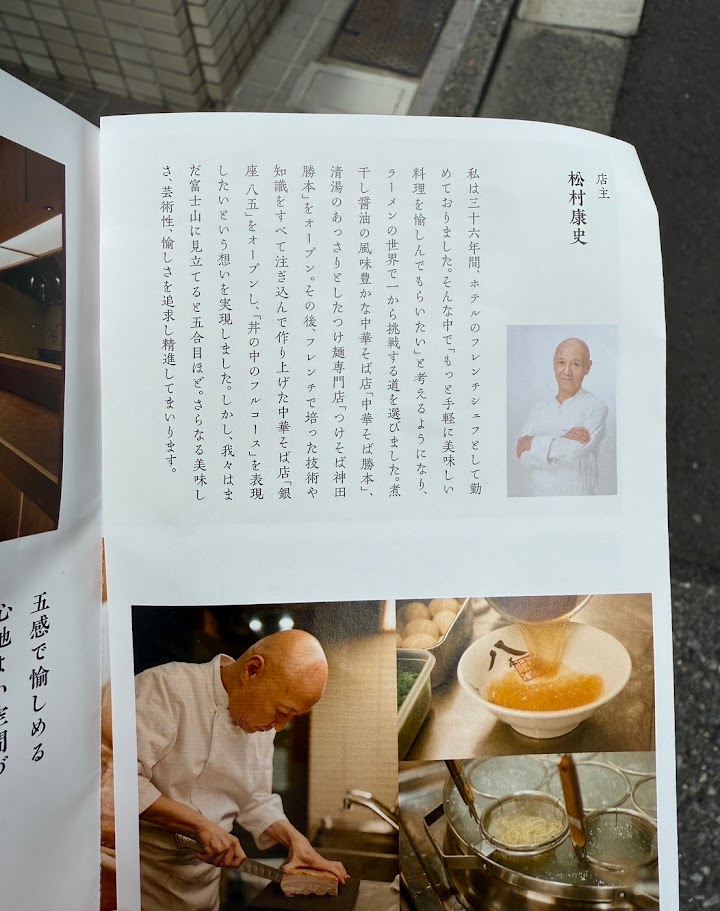 店主
松村康史
私は三十六年間、ホテルのフレンチシェフとして勤
めておりました。そんな中で「もっと手軽に美味しい
料理を愉しんでもらいたい」と考えるようになり、
ラーメンの世界で一から挑戦する道を選びました。煮
干し醤油の風味豊かな中華そば店「中華そば勝本」、
清湯のあっさりとしたつけ麺専門店「つけそば神田
勝本」をオープン。その後、フレンチで培った技術や
知識をすべて注ぎ込んで作り上げた中華そば店「銀
座 八五」をオープンし、「丼の中のフルコース」を表現
したいという想いを実現しました。しかし、我々はま
だ富士山に見立てると五合目ほど。さらなる美味し
さ、芸術性、愉しさを追求し精進してまいります。
八
五感で愉しめる
心地よい空間づ